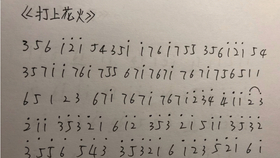 《打上花火》
3 5 6 i 2 i 5 4 3 5 i i 7 6 i 7 5 5 3 5 6 i 2 i 5 4
3 5 7 i i 7 6 i 7 5 5 6 7 i 7 6 7 i 7 6 7 i 7 5 6 5 1 1
6 5 1 2 3 6 7 i 7 6 7 i 7 6 7 i 2 3 4 4 i i 2 3
2 i i 3 5 3 2 i 6 i 2 3 5 3 2 i 5 i i 3 5 3 2
3 5 5 6 5 4 3 3 5 3 2 i 2 3 6 i 2 3 5 2 i 6 i